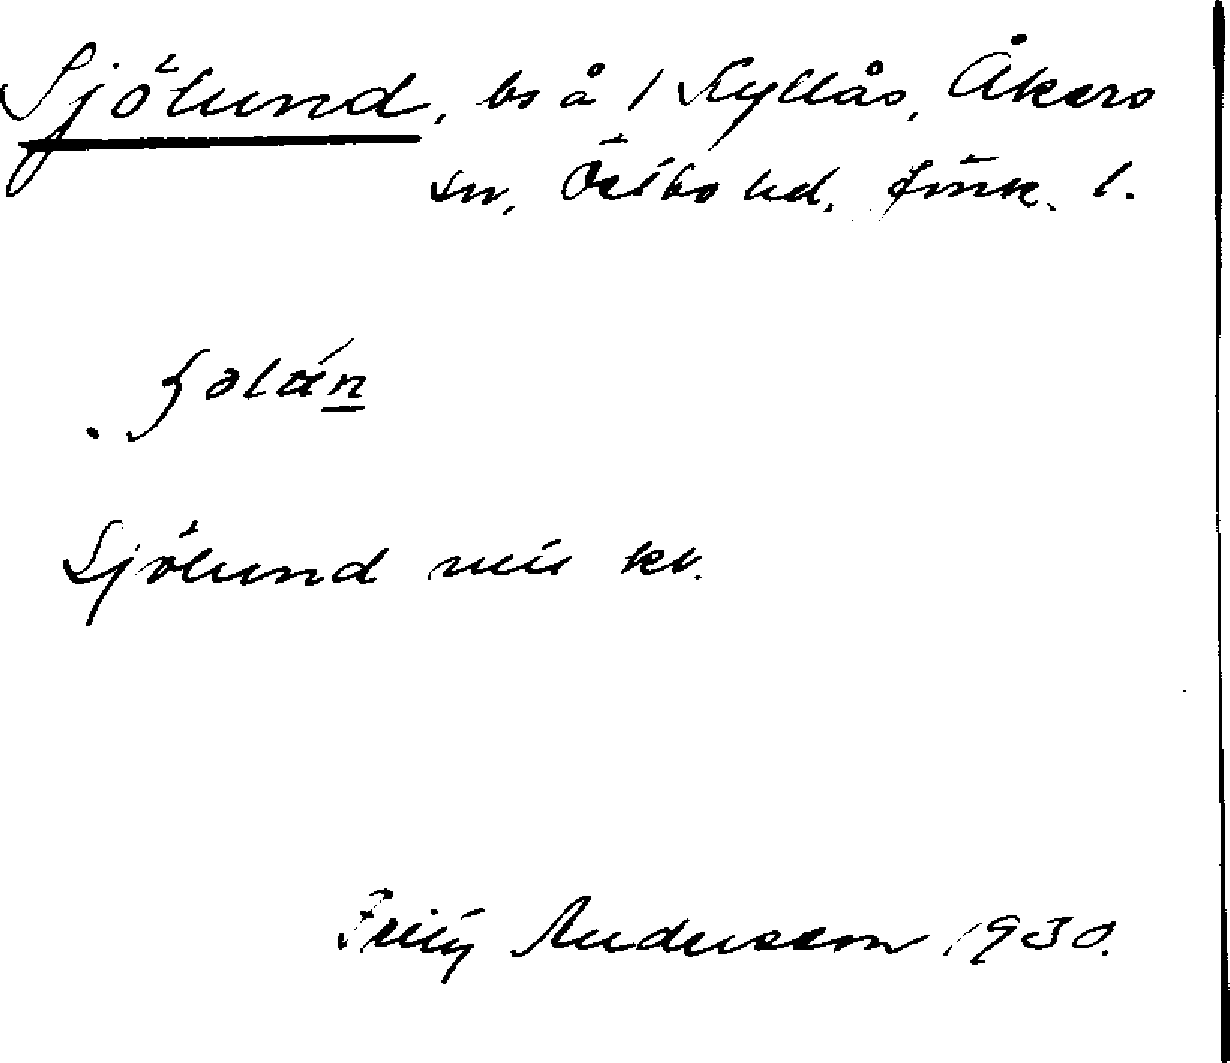 Sjölund, bs å 1 Kyllås, Åkers
sn, Östbo hd, Jönk. l.
Sjölund mis kt.
Fritz Andersson 1930.